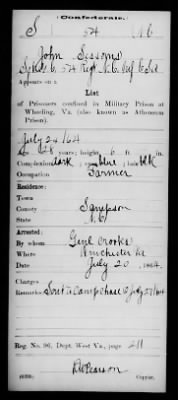 Confederate.
S 574 N.C.
John Sessoms
Co. 6, 574 Regt. N.C. Inf.
Appears on a
List
of Prisoners confined in Military Prison at
Wheeling, Va. (also known as Atheneum
Prison)
July 24/64
Age 28 years; height, 6 ft. in.
Complexion dark; eyes blue; hair blk
Occupation Farmer
Residence:
Town
County Sampson
State N.C.
Arrested:
By whom Genl Crooks
Where Winchester Va
Date July 20, 1864.
Charges
Remarks Sent to Camp Chase O July 23/64
Reg. No. 96, Dept. West Va., page 211
Copyist.